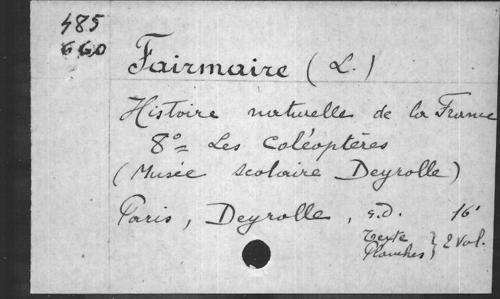 485
660
Fairmaire (L.)
Histoire naturelle de la France
8° = Les Coléoptères
(Musée scolaire Deyrolle)
Paris, Deyrolle, s.d. 16°
Texte
Planches } 2 vol.